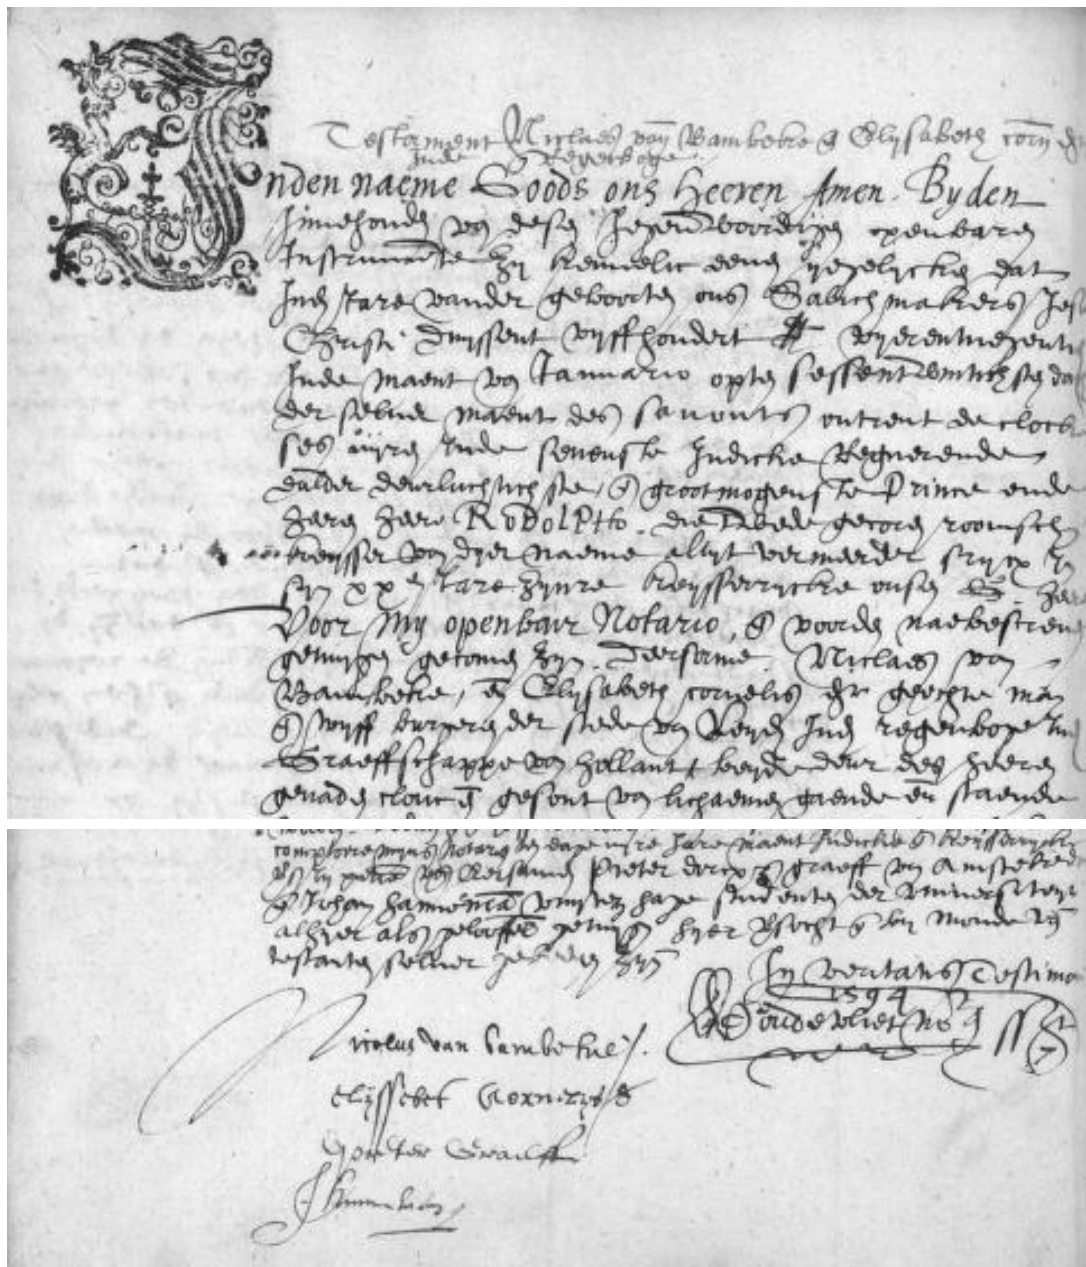 Testament Niclaes van Bambeke & Elysabeth corn
Inde Regenboge
Inden naeme Goods ons Heeren Amen. Byden
Innehouden van desen Jegenwoordigen openbaren
Instrumente Zy kennelic eenen yegelycken dat
Inden Jare vander geboorten ons Salichmakers Jes
Christi duyssent vyffhondert vyerentnegenti
Inde maent van Januario opten sessentwintichsten da
der selver maent des savonts ontrent de clock
ses uyren Inde sevenste Indictie Regnerende
alder deurluchtichste & grootmogenste Prince ende
heere heere RODOLPHO die twede gecoren roomsch
keysser van dyer naeme altyt vermeerder sryxs In
syn xx Jare zynre keysserrycke onsen G. heere
Voor My openbair Notario, & voorden naebescreven
getuygen gecomen zyn. deersame Niclaes van
Bambeke, en Elysabeth cornelis dr geechte man
& wyff burgeren der stede van Leyden Inden regenboge Inde
Graeffschappe van Hollant beyde deur des heeren
genaden clouc en gesont van lichaemen gaende en staende
comptoire myns Notarii ten dage uyre Jare maent Indictie & keysserrycke
als In presentie van Eersamen Pieter dercxz graeff van Amstelred
& Johan hammonaeus studenten der Universiteyt
alhyer als geloffte getuygen hyer versocht & by monde van
testanten selver gebeden zyn
In veritatis Testimo
1594
Oudevliet Not
Nicolaes van bambeke
elyssebet Cornelys d
Pieter Graeff